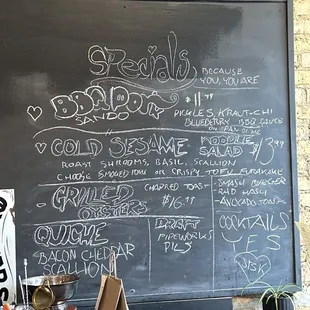 Specials
BECAUSE
YOU, YOU ARE
BBQ PORK
SANDO
$11.99
PICKLES KRAUT-CHI
BLUEBERRY BBQ SAUCE
COLD SESAME
NOODLE
SALAD
$13.99
ROAST SHROOMS, BASIL, SCALLION
CHOOSE SMOKED PORK OR CRISPY TOFU
- GRILLED
OYSTERS
CHARRED TOAST
$16.99
- SMASH BURGER
- AVOCADO TOAST
QUICHE
BACON CHEDDAR
SCALLION
DRAFT
PIPEWORKS
PILS
COCKTAILS
YES